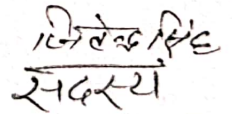 जितेन्द्र सिंह
सदस्य